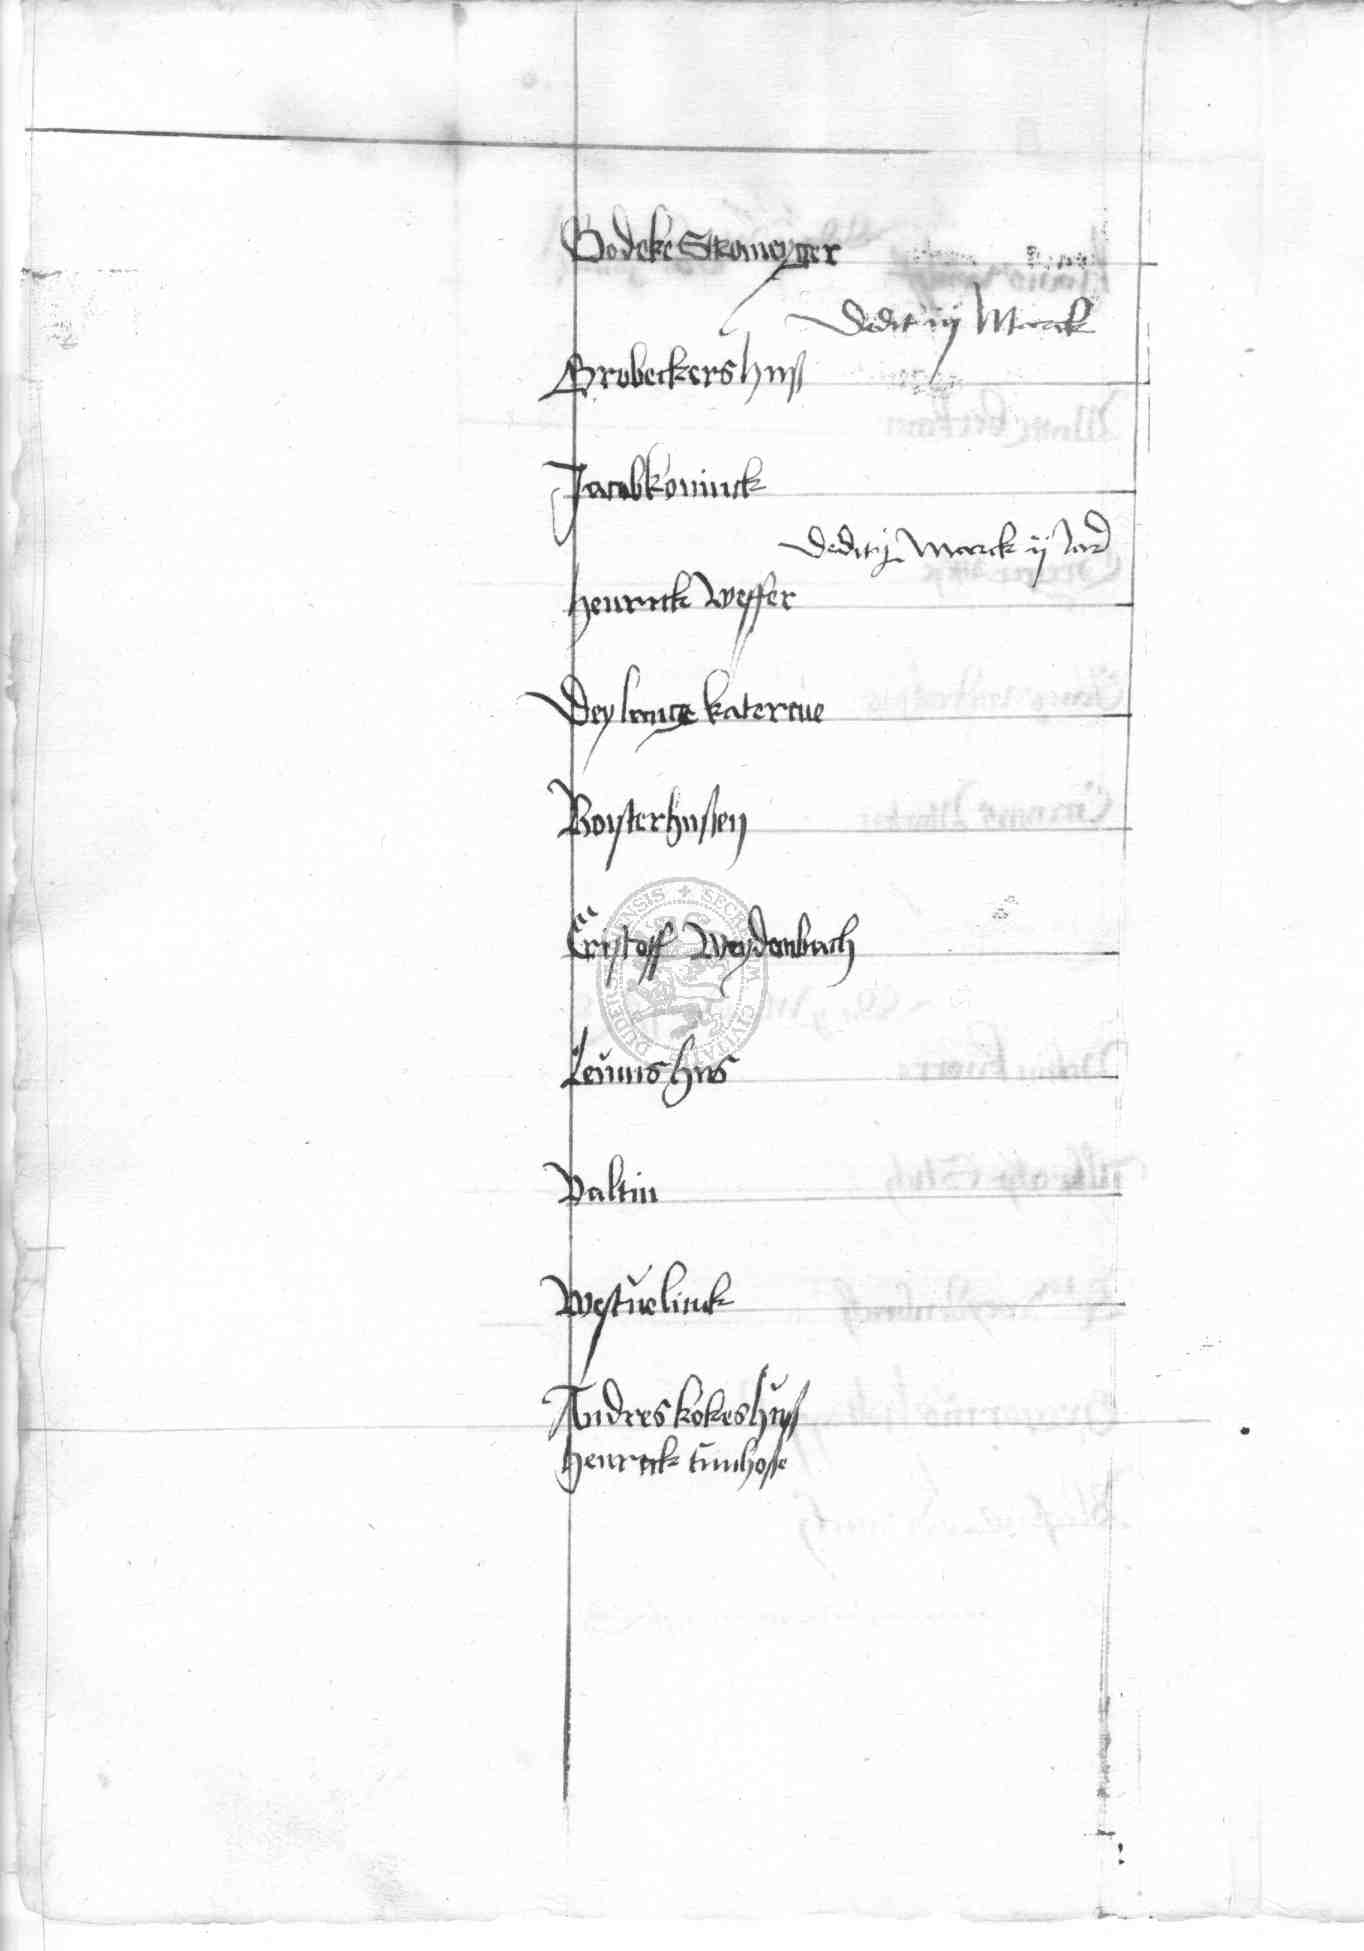 Godeke Stromeyger
dedit iij Marck
Brobeckers huß
Jacob Koninck
dedit j Marck ij lad
Henrick Wesser
Dey lange katerine
Boysterhusen
Cristoff Weydenbach
Leuins hus
Valtin
Westuelinck
Andres kokes huß
Henrick